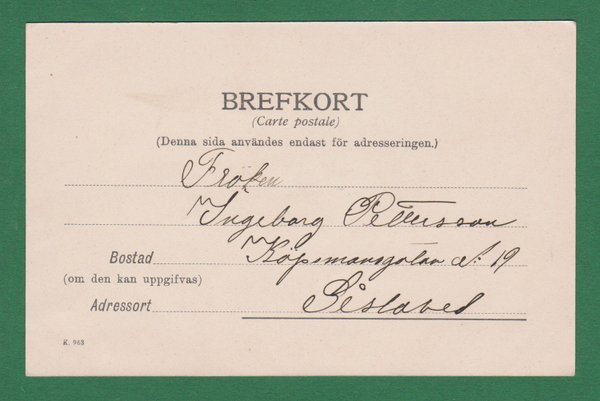 BREFKORT
(Carte postale)
(Denna sida användes endast för adresseringen.)
Fröken
Ingeborg Pettersson
Bostad Köpmansgatan 19
(om den kan uppgifvas)
Adressort Gislaved
K. 963